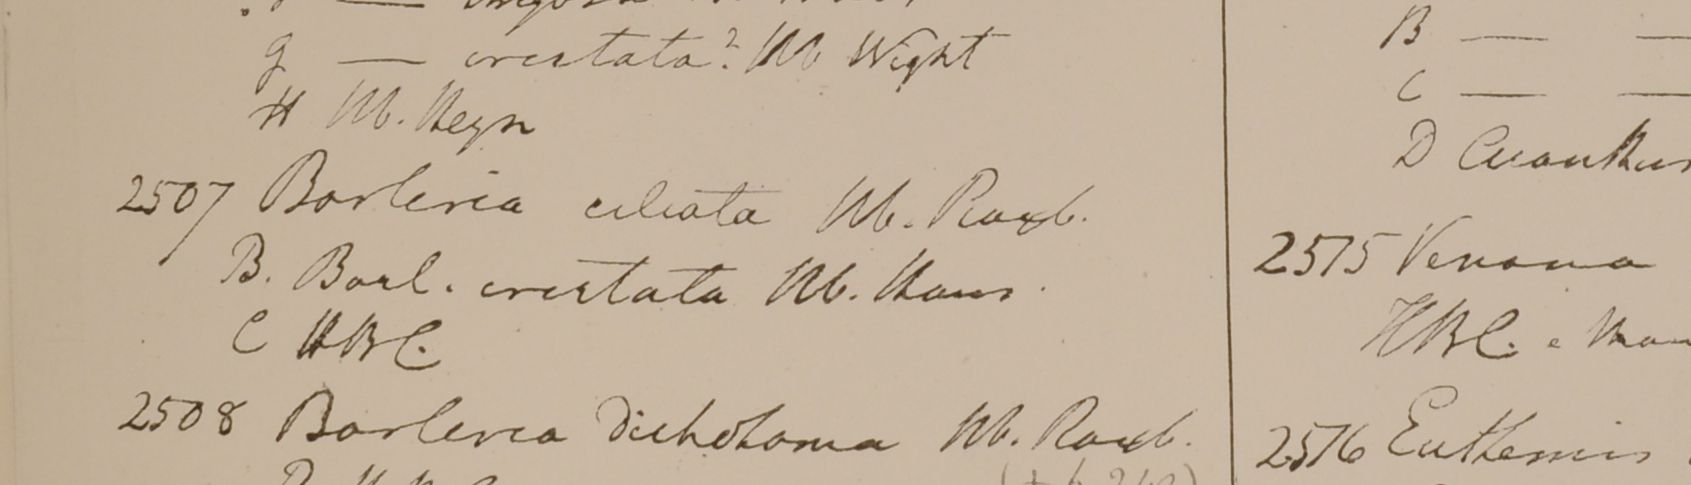 g — cristata? Hb Wight
H Hb. Heyn
2507 Barleria ciliata Hb. Roxb.
B. Barl. cristata Hb. Ham.
C HBC.
2508 Barleria dichotoma Hb. Roxb.
B —
C —
D
2575
HBC. e
2576 Euthemis